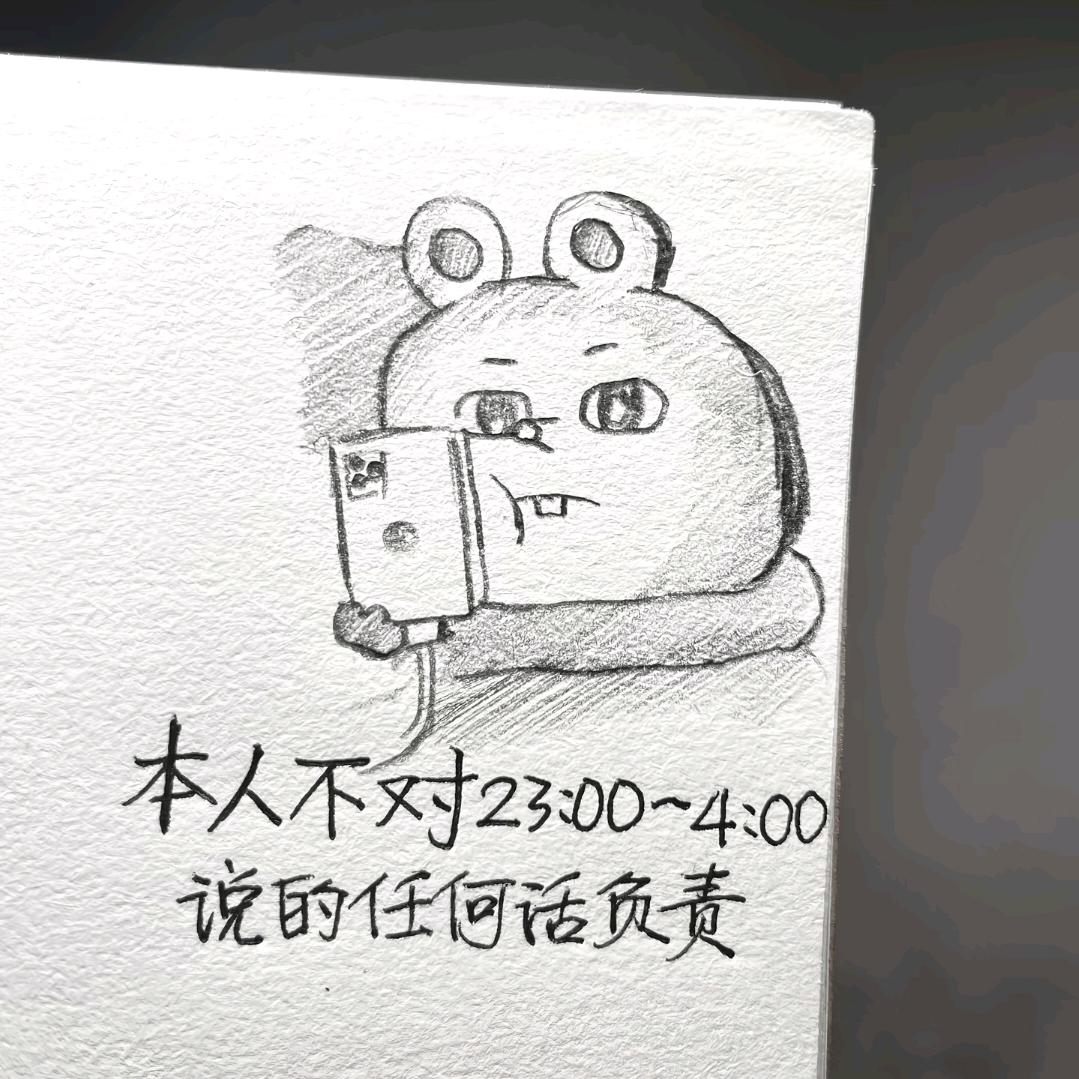 本人不对23:00~4:00
说的任何话负责